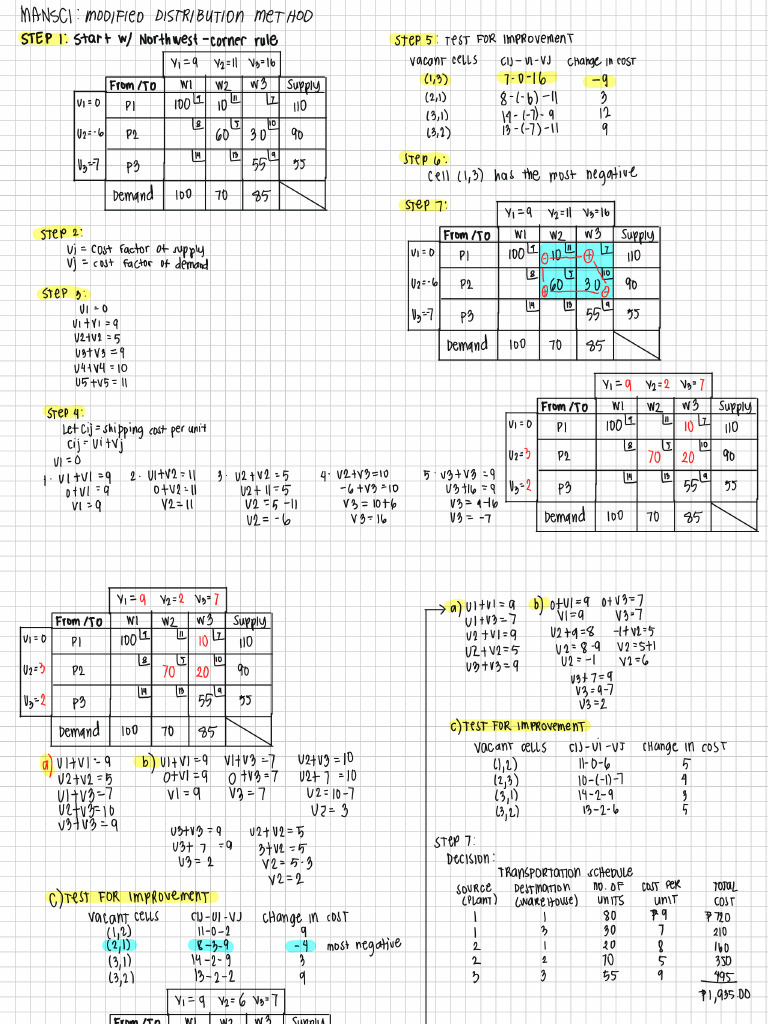 MANSCI: MODIFIED DISTRIBUTION METHOD
STEP 1: Start w/ Northwest-corner rule
V1=9 V2=11 V3=16
From/To W1 W2 W3 Supply
U1=0 P1 100 9 10 11 7 110
U2=-6 P2 8 60 5 30 10 90
U3=-7 P3 14 13 55 9 55
Demand 100 70 85
STEP 2:
Uj = cost factor of supply
Vj = cost factor of demand
STEP 3:
U1=0
U1+V1=9
U2+V2=5
U3+V3=9
U4+V4=10
U5+V5=11
STEP 4:
Let Cij = shipping cost per unit
Cij = Ui+Vj
U1=0
1. U1+V1=9
0+V1=9
V1=9
2. U1+V2=11
0+V2=11
V2=11
3. U2+V2=5
U2+11=5
U2=5-11
U2=-6
4. U2+V3=10
-6+V3=10
V3=10+6
V3=16
5. U3+V3=9
U3+16=9
V3=9-16
V3=-7
STEP 5: TEST FOR IMPROVEMENT
VACANT CELLS CIJ-UI-VJ CHANGE IN COST
(1,3) 7-0-16 -9
(2,1) 8-(-6)-11 3
(3,1) 14-(-7)-9 12
(3,2) 13-(-7)-11 9
STEP 6:
Cell (1,3) has the most negative
STEP 7:
V1=9 V2=11 V3=16
From/To W1 W2 W3 Supply
U1=0 P1 100 9 10 11 7 110
U2=-6 P2 8 60 5 30 10 90
U3=-7 P3 14 13 55 9 55
Demand 100 70 85
V1=9 V2=2 V3=7
From/To W1 W2 W3 Supply
U1=0 P1 100 9 11 10 7 110
U2=3 P2 8 70 5 20 10 90
U3=2 P3 14 13 55 9 55
Demand 100 70 85
V1=9 V2=2 V3=7
From/To W1 W2 W3 Supply
U1=0 P1 100 9 11 10 7 110
U2=3 P2 8 70 5 20 10 90
U3=2 P3 14 13 55 9 55
Demand 100 70 85
a) U1+V1=9
U2+V2=5
U1+V3=7
U2+V3=10
V3+V3=9
b) U1+V1=9
0+V1=9
V1=9
V1+V3=7
0+V3=7
V3=7
U2+V3=10
U2+7=10
U2=10-7
U2=3
U3+V3=9
U3+7=9
U3=2
U2+V2=5
3+V2=5
V2=5-3
V2=2
C) TEST FOR IMPROVEMENT
VACANT CELLS CIJ-UI-VJ CHANGE IN COST
(1,2) 11-0-2 9
(2,1) 8-3-9 -4 most negative
(3,1) 14-2-9 3
(3,2) 13-2-2 9
V1=9 V2=6 V3=7
From/To W1 W2 W3 Supply
a) U1+V1=9
U1+V3=7
U2+V1=9
U2+V2=5
U3+V3=9
b) 0+V1=9
V1=9
0+V3=7
V3=7
U2+9=8
U2=8-9
U2=-1
-1+V2=5
V2=5+1
V2=6
U3+7=9
V3=9-7
V3=2
C) TEST FOR IMPROVEMENT
VACANT CELLS CIJ-UI-VJ CHANGE IN COST
(1,2) 11-0-6 5
(2,3) 10-(-1)-7 4
(3,1) 14-2-9 3
(3,2) 13-2-6 5
STEP 7:
DECISION:
TRANSPORTATION SCHEDULE
SOURCE (PLANT) DESTINATION (WAREHOUSE) NO. OF UNITS COST PER UNIT TOTAL COST
1 1 80 ₱9 ₱720
1 3 30 7 210
2 1 20 8 160
2 2 70 5 350
3 3 55 9 495
₱1,935.00